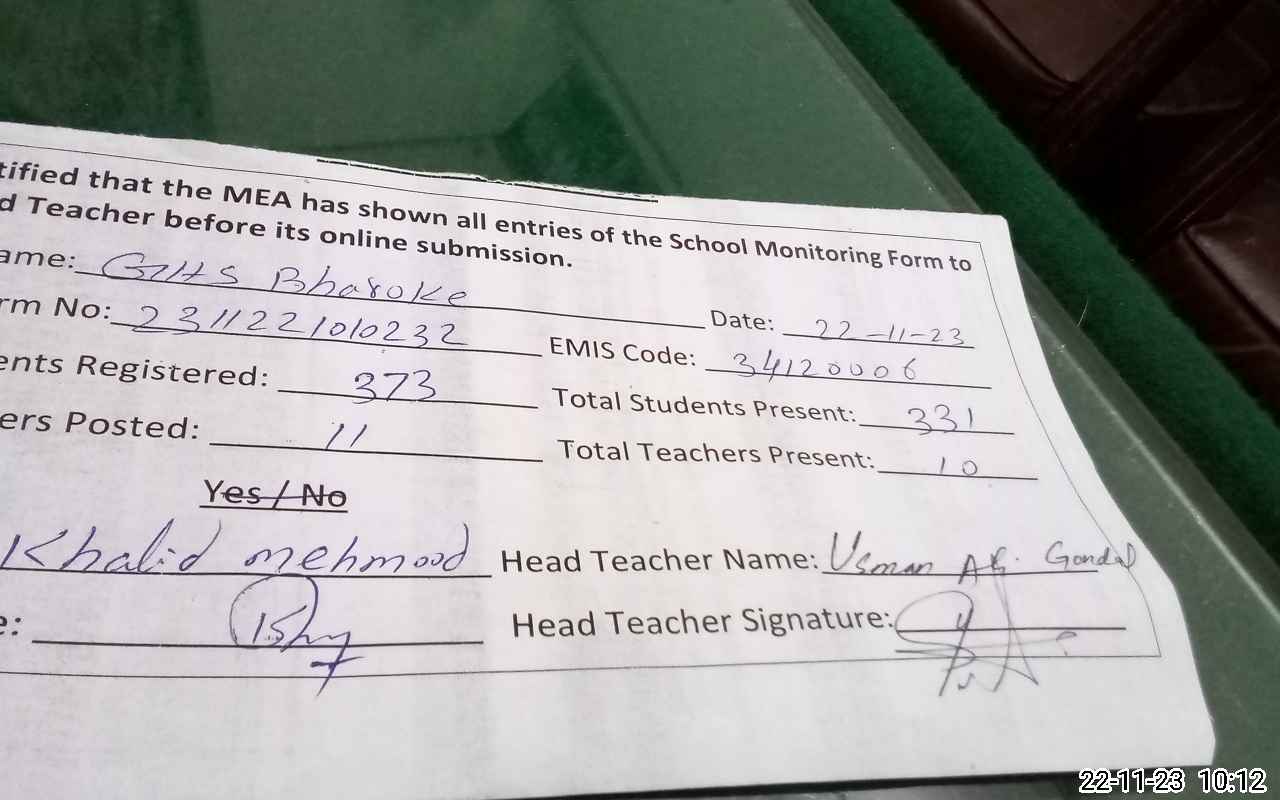 tified that the MEA has shown all entries of the School Monitoring Form to
d Teacher before its online submission.
ame: GHS Bharoke
Date: 22-11-23
rm No: 2311221010232
EMIS Code: 34120006
ents Registered: 373
Total Students Present: 331
ers Posted: 11
Total Teachers Present: 10
Yes / No
Khalid mehmood
Head Teacher Name: Usman Ali Gondal
e:
Head Teacher Signature:
22-11-23 10:12